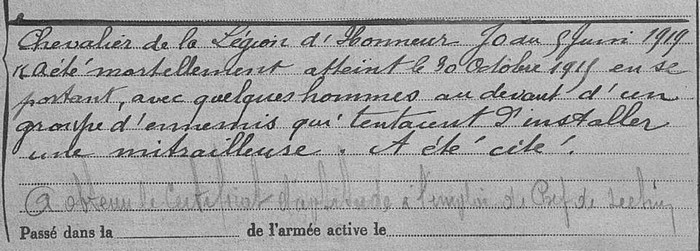 Chevalier de la Légion d'Honneur JO du 5 Juin 1919
"A été mortellement atteint le 30 Octobre 1915 en se
portant, avec quelques hommes au devant d'un
groupe d'ennemis qui tentaient d'installer
une mitrailleuse. A été cité.
A obtenu le Certificat d'aptitude à l'emploi de de
Passé dans la de l'armée active le